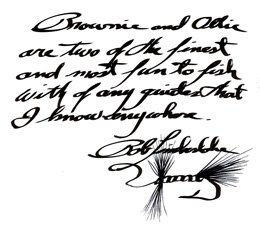 Brownie and Ollie
are two of the finest
and most fun to fish
with of any guides that
I know anywhere.
Bob